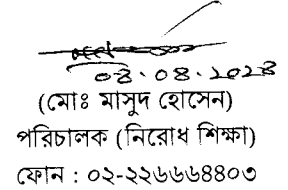 ০৪.০৪.২০২৪
(মোঃ মাসুদ হোসেন)
পরিচালক (নিরোধ শিক্ষা)
ফোন : ০২-২২৬৬৬৪৪০৩